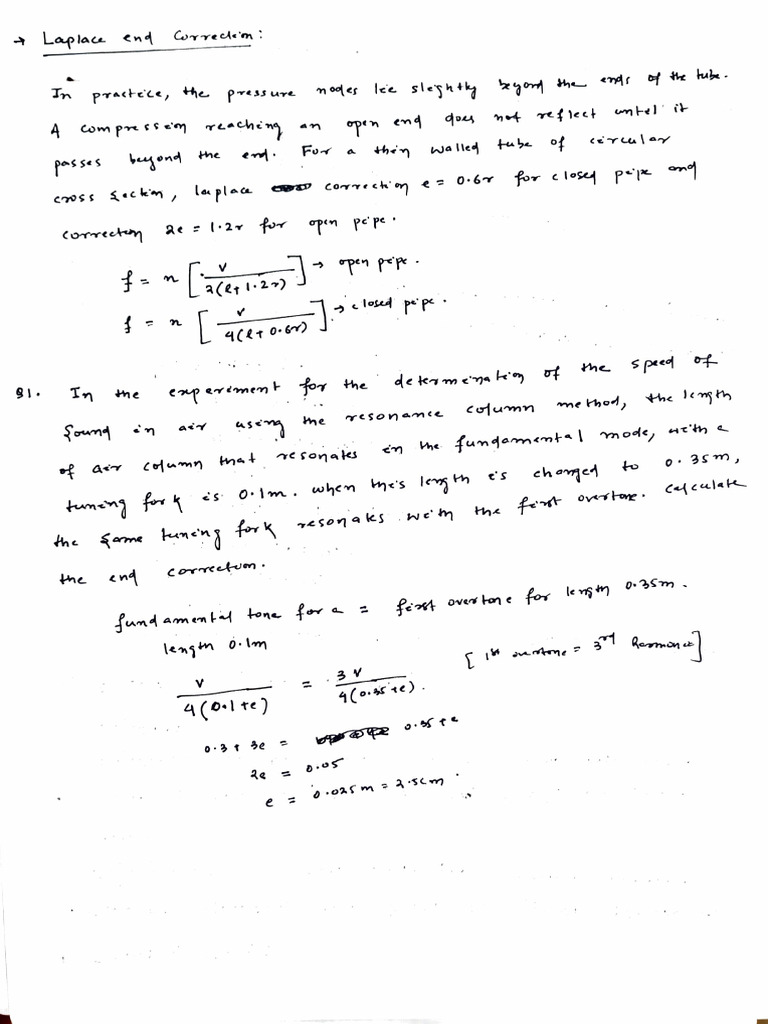 → Laplace end Correction:
In practice, the pressure nodes lie slightly beyond the ends of the tube.
A compression reaching an open end does not reflect until it
passes beyond the end. For a thin walled tube of circular
cross section, laplace correction e = 0.6r for closed pipe and
correction 2e = 1.2r for open pipe.
f = n [ v / 2(l + 1.2r) ] → open pipe.
f = n [ v / 4(l + 0.6r) ] → closed pipe.
Q1. In the experiment for the determination of the speed of
sound in air using the resonance column method, the length
of air column that resonates in the fundamental mode, with a
tuning fork is 0.1m. when this length is changed to 0.35m,
the same tuning fork resonates with the first overtone. Calculate
the end correction.
fundamental tone for a = first overtone for length 0.35m.
length 0.1m
v / 4(0.1+e) = 3v / 4(0.35+e). [1st overtone = 3rd Harmonic]
0.3 + 3e = 0.35+e
2e = 0.05
e = 0.025m = 2.5cm.